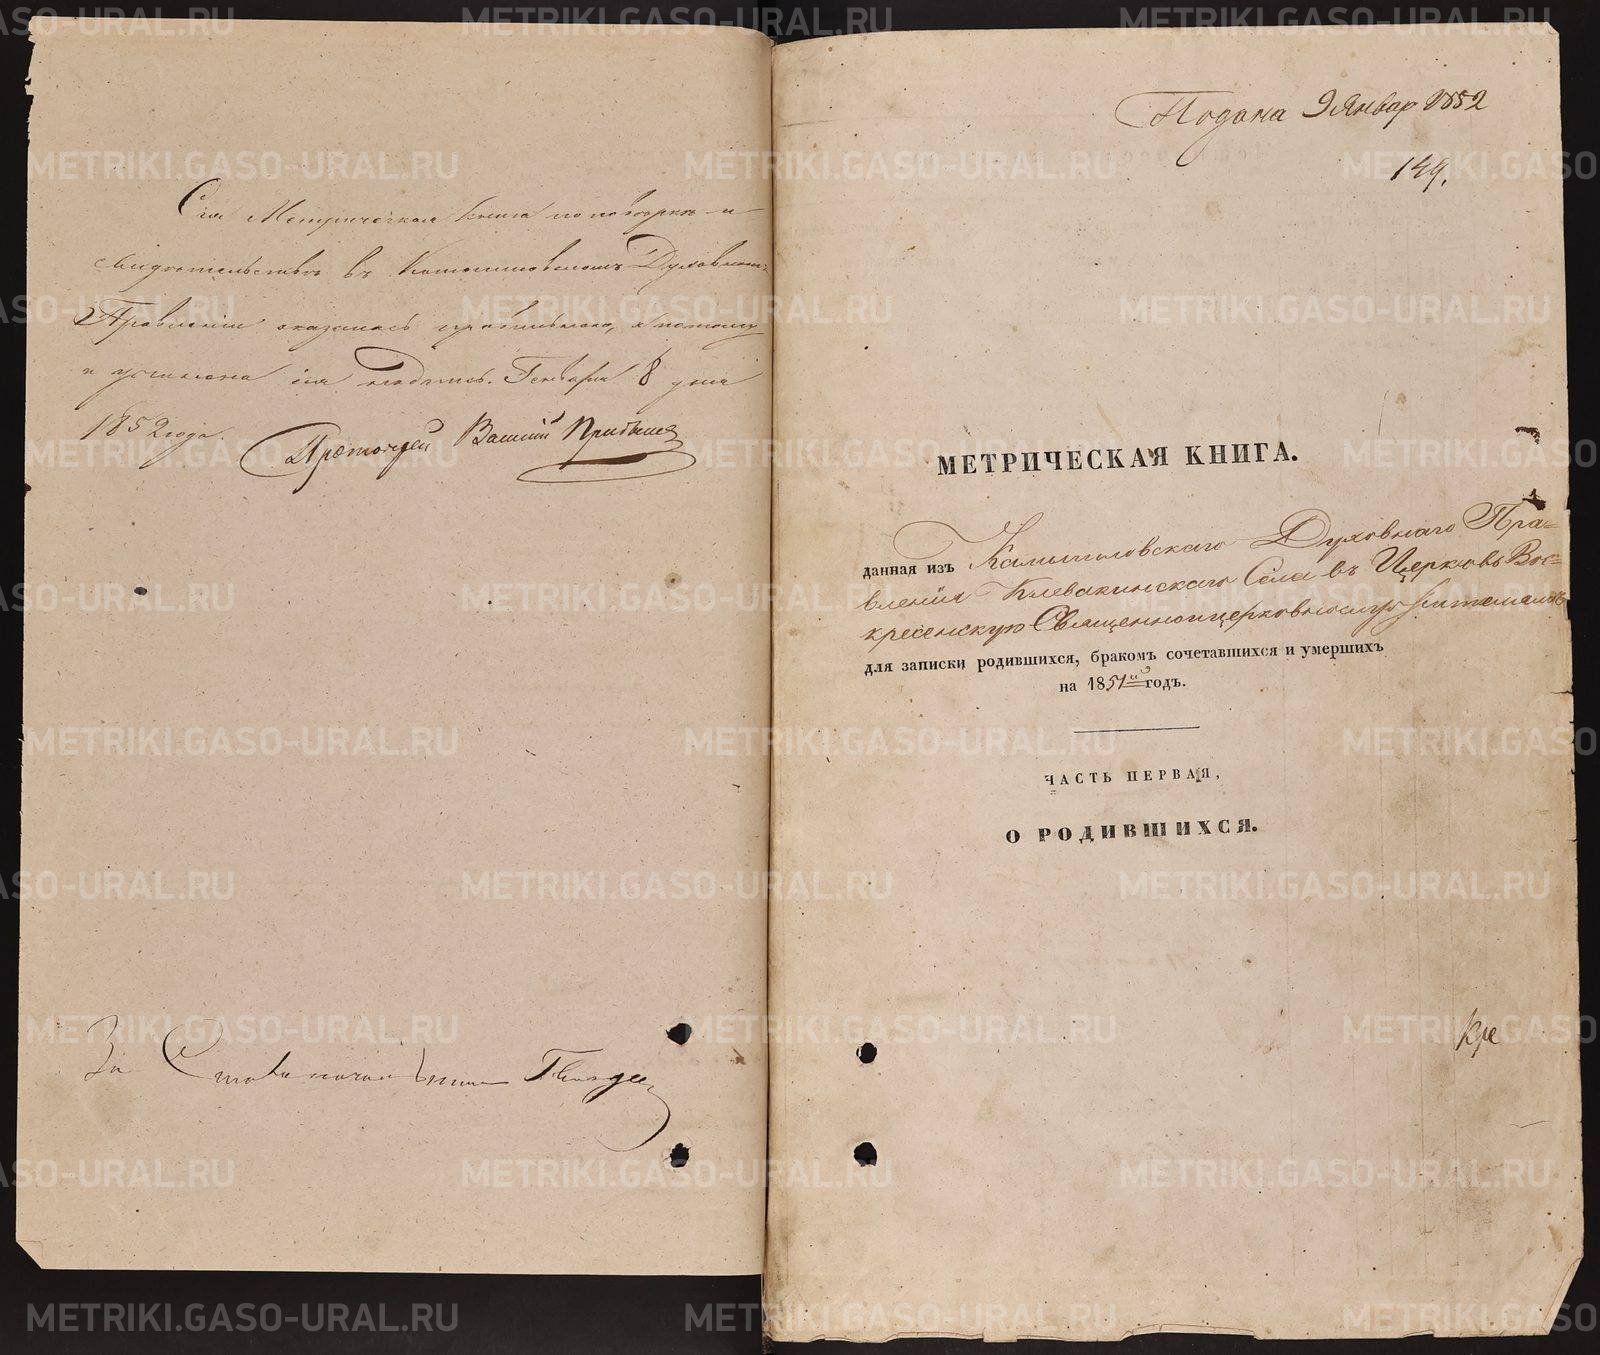 Сія Метрическая книга по поверке и
свидетельстве въ Камышловскомъ Духовномъ
Правленіи оказалась правильною, а потому
и учинена сія подпись. Генваря 8 дня
1852 года.
Протоіерей Василій
За Столоначальника
Подана 9 Январ 1852
149.
МЕТРИЧЕСКАЯ КНИГА.
данная изъ Камышловскаго Духовнаго Пра=
вленія Клевакинскаго Села въ Церковь Вос=
кресенскую Священноцерковнослужителямъ
для записки родившихся, бракомъ сочетавшихся и умершихъ
на 1851й годъ.
ЧАСТЬ ПЕРВАЯ,
О РОДИВШИХСЯ.
кре
METRIKI.GASO-URAL.RU